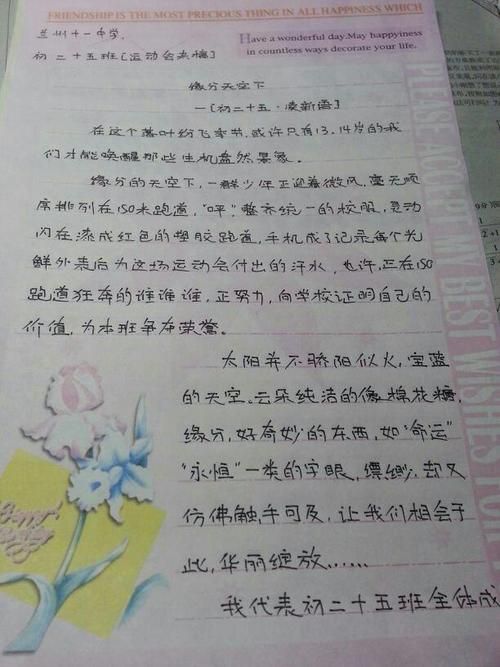 FRIENDSHIP IS THE MOST PRECIOUS THING IN ALL HAPPINESS WHICH
Have a wonderful day.May happyiness
in countless ways decorate your life.
兰州十一中学.
初二十五班[运动会来稿]
缘分天空下
—[初二十五·凌新语]
在这个落叶纷飞季节,或许只有13.14岁的我
们才能唤醒那些生机盎然景象。
缘分的天空下,一群少年正迎着微风,毫无顺
序排列在150米跑道,"呯!"整齐统一的校服,灵动
闪在漆成红色的塑胶跑道,手机成了记录每个光
鲜外表后为这场运动会付出的汗水,也许,正在150
跑道狂奔的谁谁谁,正努力,向学校证明自己的
价值,为本班争夺荣誉。
太阳并不骄阳似火,宝蓝
的天空。云朵纯洁的像棉花糖,
缘分,好奇妙的东西,如"命运"
"永恒"一类的字眼,缥缈,却又
仿佛触手可及,让我们相会于
此,华丽绽放......
我代表初二十五班全体成
PLEASE ACCEPT MY BEST WISHES FOR
Happy